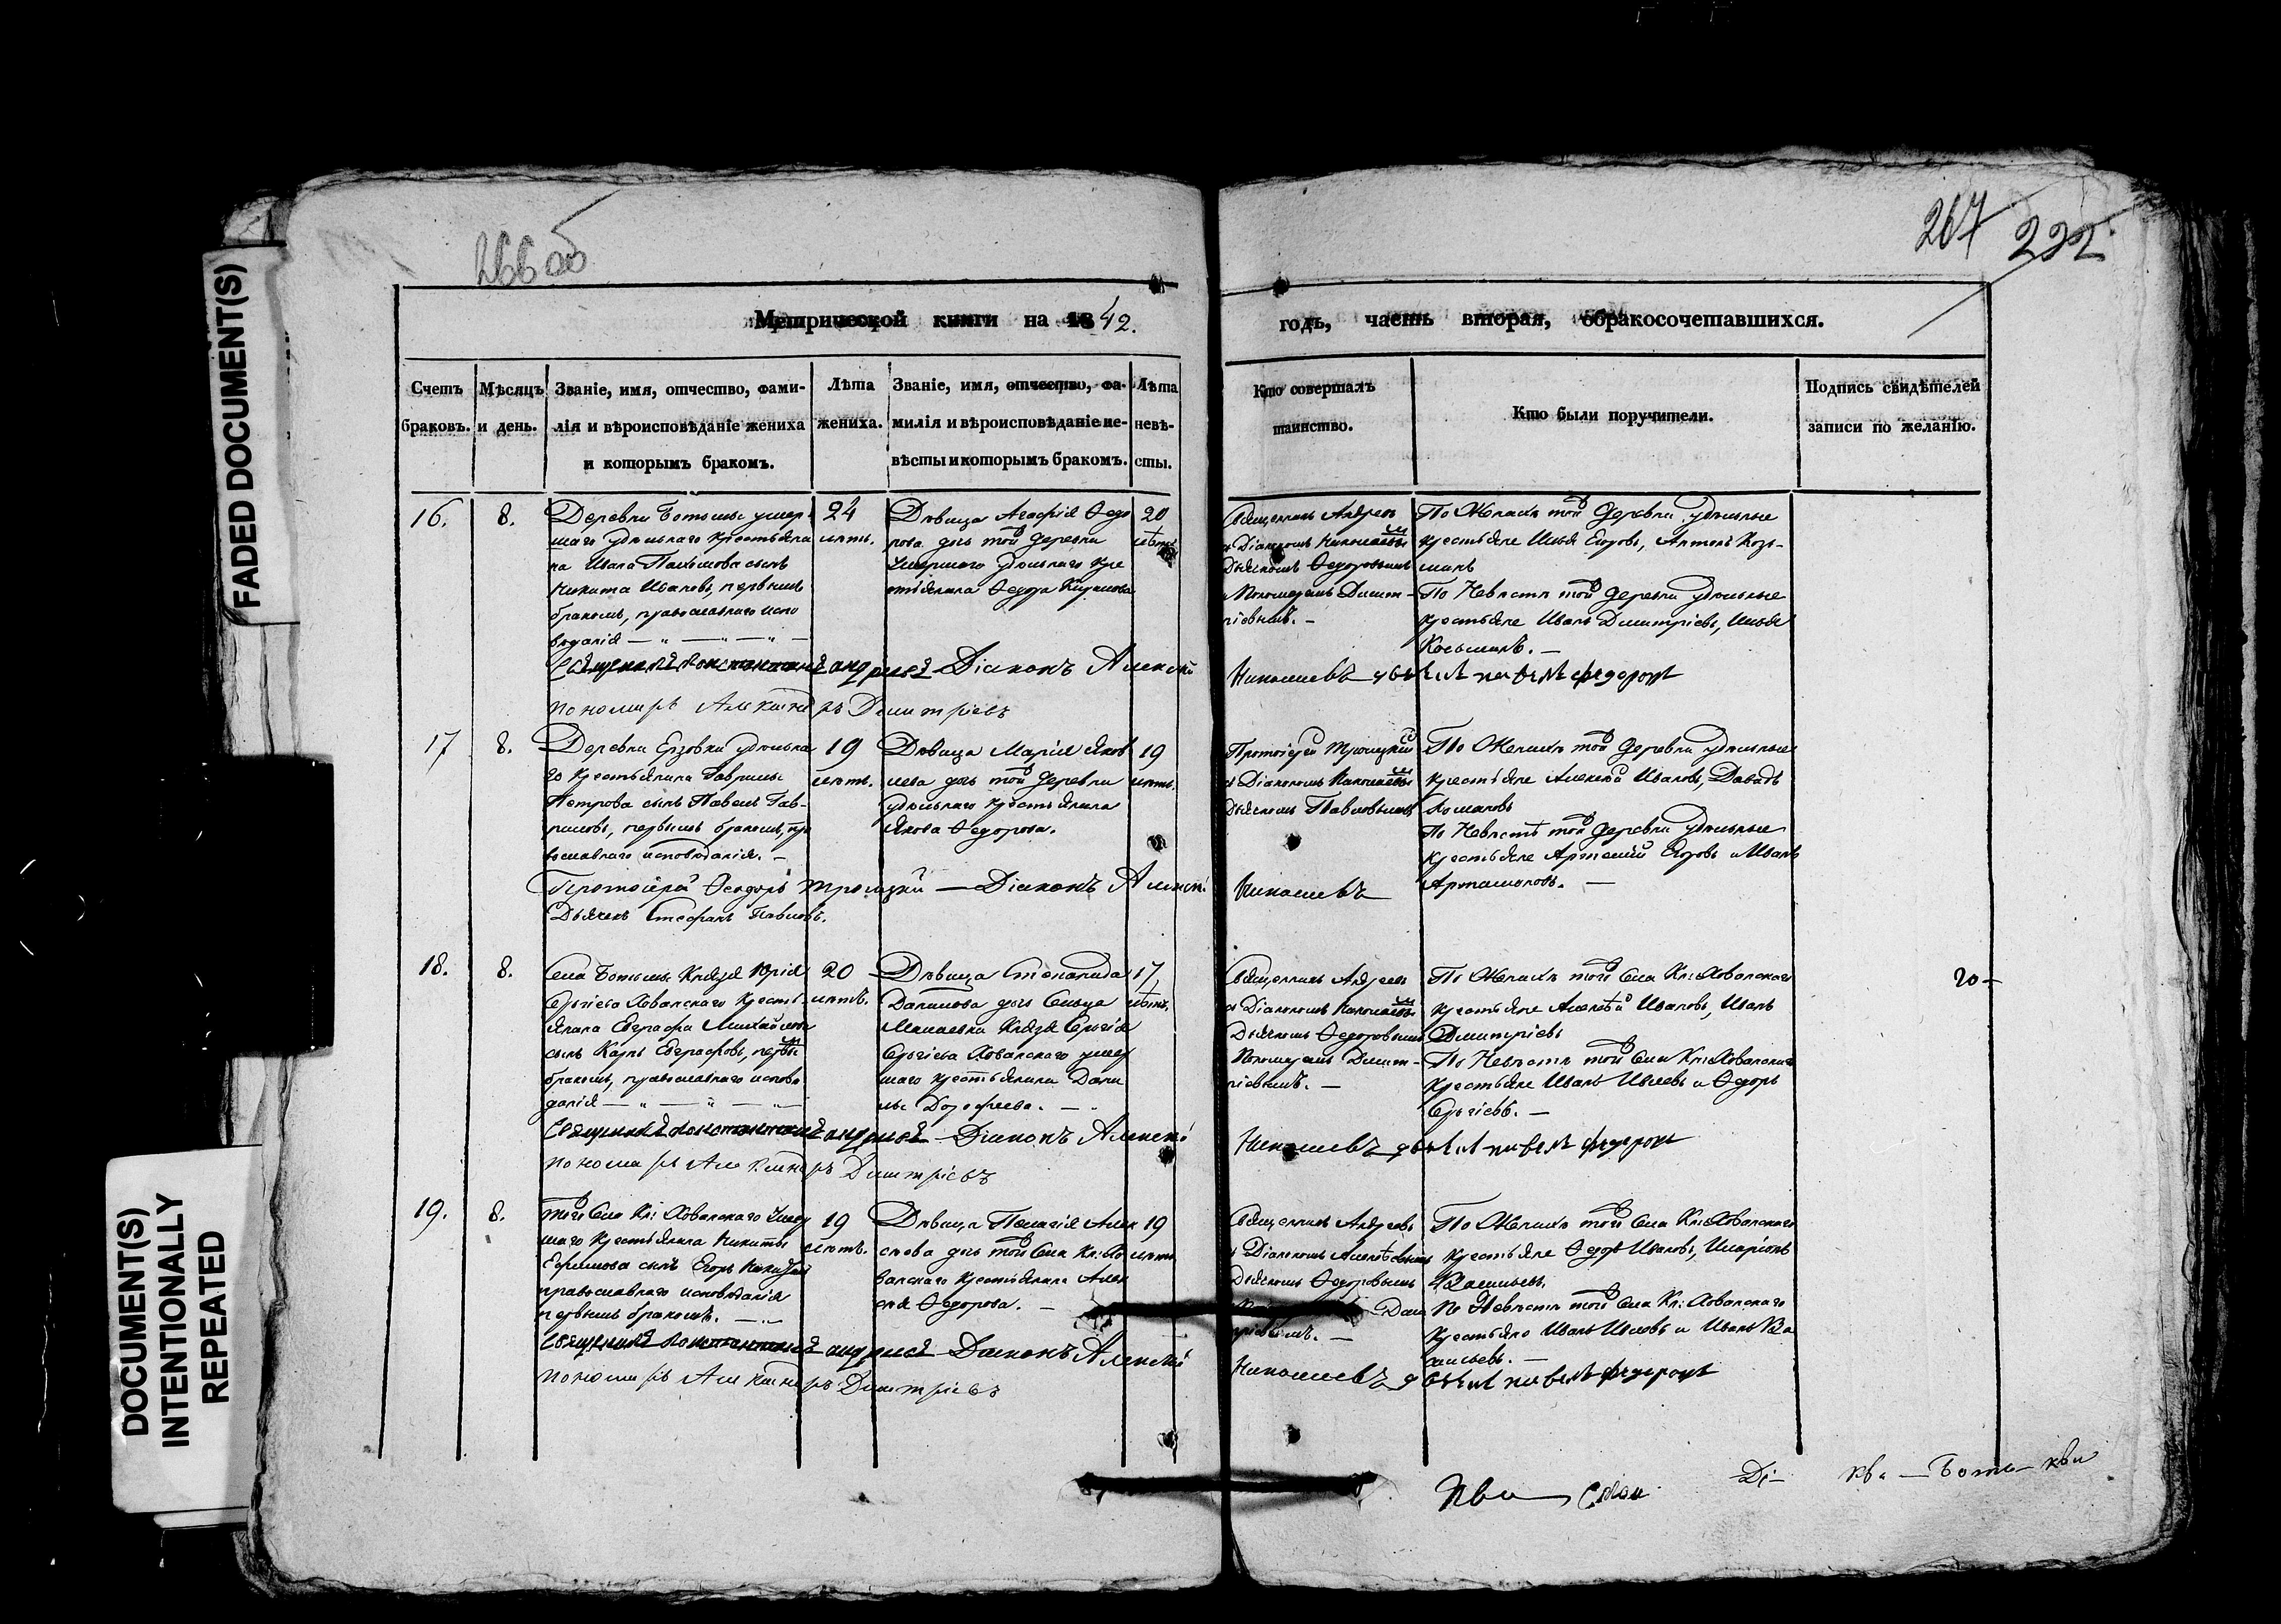 FADED DOCUMENT(S)
DOCUMENT(S)
INTENTIONALLY
REPEATED
266об
267 222
Метрической книги на 1842.
годъ, часть вторая, обракосочетавшихся.
Счетъ
браковъ.
Мѣсяцъ
и день.
Званіе, имя, отчество, фами-
лія и вѣроисповѣданіе жениха
и которымъ бракомъ.
Лѣта
жениха.
Званіе, имя, отчество, фа-
милія и вѣроисповѣданіе не-
вѣсты и которымъ бракомъ.
Лѣта
невѣ-
сты.
Кто совершалъ
таинство.
Кто были поручители.
Подпись свидѣтелей
записи по желанію.
16.
8.
Деревни Ботьмы умер-
шаго удѣльнаго крестьяни
на Ивана сынъ
Никита Ивановъ, первымъ
бракомъ, православнаго испо
вѣданія — " — " — " —
24
лѣтъ.
Дѣвица Агафія Ѳедо
рова дочь той деревни
умершаго удѣльнаго кре
стьянина Ѳедора
20
лѣтъ
Священникъ Андреевъ
съ Діакономъ Николаевы
Дьячкомъ Ѳедоровымъ
и Пономаремъ Димит-
ріевымъ. —
По Женихѣ той деревни удѣльные
крестьяне Илья Егоровъ, Антонъ Козь-
минъ
По Невѣстѣ той деревни удѣльные
крестьяне Иванъ Димитріевъ, Илья
Косьминъ. —
Священникъ Константинъ Андреевъ Діаконъ Алексѣй Николаевъ
пономарь Александръ Димитріевъ
17
8.
Деревни Ерзовки удѣльна
го крестьянина Гаврилы
Петрова сынъ Павелъ Гав-
риловъ, первымъ бракомъ, пра
вославнаго исповѣданія. —
19
лѣтъ.
Дѣвица Марія Яков
лева дочь той деревни
удѣльнаго крестьянина
Якова Ѳедорова.
19
лѣтъ.
Протоіерей Троицкій
съ Діакономъ Николаевы
Дьячкомъ Павловымъ
По Женихѣ той деревни удѣльные
крестьяне Алексѣй Ивановъ, Давыдъ
По Невѣстѣ той деревни удѣльные
крестьяне Артемій Егоровъ и Иванъ
Протоіерей Ѳеодоръ Троицкій — Діаконъ Алексѣй Николаевъ
Дьячекъ Стефанъ Павловъ.
18.
8.
Села Ботьмы Князя Юрія
Сергіева Хованскаго кресть-
янина Евграфа Михайлова
сынъ Карпъ Евграфовъ, первы
бракомъ, православнаго исповѣ
данія — " — " — " —
20
лѣтъ.
Дѣвица Степанида
Данилова дочь Сельца
Князя Сергія
Сергіева Хованскаго умер
шаго крестьянина Дани
лы Дорофеева. —
17
лѣтъ.
Священникъ Андреевъ
съ Діакономъ Николаевы
Дьячкомъ Ѳедоровымъ
Пономаремъ Димит-
ріевымъ. —
По Женихѣ того Села Кн: Хованскаго
крестьяне Алексѣй Ивановъ, Иванъ
Димитріевъ
По Невѣстѣ того Села Кн: Хованскаго
крестьяне Иванъ и Ѳедоръ
Сергіевъ. —
20 —
Священникъ Константинъ Андреевъ — Діаконъ Алексѣй Николаевъ
пономарь Александръ Димитріевъ
19.
8.
того Села Кн: Хованскаго умер
шаго крестьянина Никиты
Ефимова сынъ Егоръ
православнаго исповѣданія
первымъ бракомъ. —
19
лѣтъ.
Дѣвица Пелагія Алек
сѣева дочь того Села Кн: Хо
ванскаго крестьянина Алек
сѣя Ѳедорова. —
19
лѣтъ
Священникъ Андреевъ
съ Діакономъ
Дьячкомъ Ѳедоровымъ
Дми
тріевымъ. —
По Женихѣ того Села Кн: Хованскаго
крестьяне Ѳедоръ Ивановъ, Иларіонъ
Васильевъ.
По Невѣстѣ того Села Кн: Хованскаго
крестьяне Иванъ и Иванъ Ва
сильевъ. —
Священникъ Константинъ Андреевъ — Діаконъ Алексѣй Николаевъ
пономарь Александръ Димитріевъ